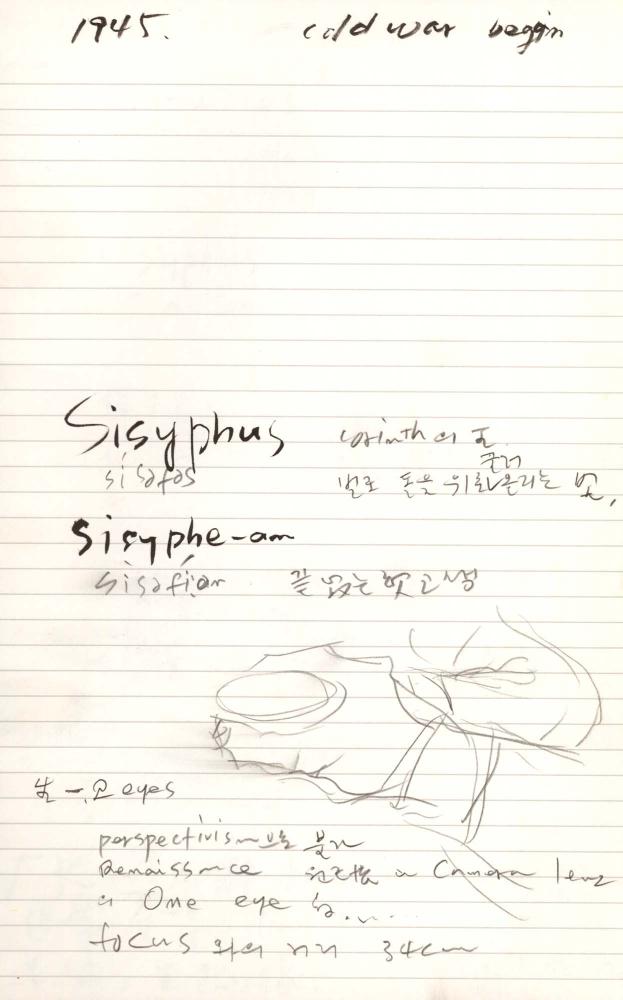 1945. cold war beggin
Sisyphus corinth의 王
sisəfəs 굴러
벌로 돌을 위로 올리는
sisyphe-am
sisəfiən 끝 없는 헛고생
eyes
perspectivism으로
Renaissance Camera lens
One eye
focus 와의 거리 34cm